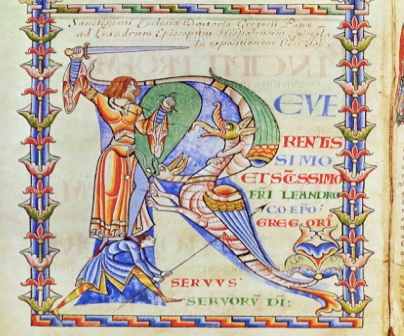 Sanctissimi Ecclesiæ Doctoris Gregorii Papæ
ad Leandrum Episcopum
in expositionem
REVE
RENTIS
SIMO
ET SC̄ISSIMO
FRI LEANDRO
COEPŌ
GREGORI
SERVVS
SERVORV̄ DĪ: